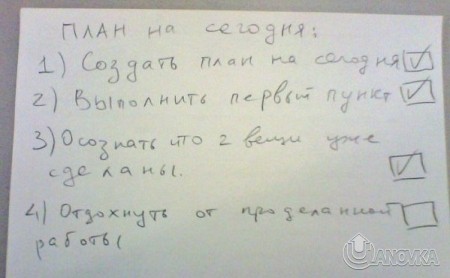 ПЛАН на сегодня:
1) Создать план на сегодня
2) Выполнить первый пункт
3) Осознать что 2 вещи уже
сделаны.
4) Отдохнуть от проделанной
работы
UANOVKA